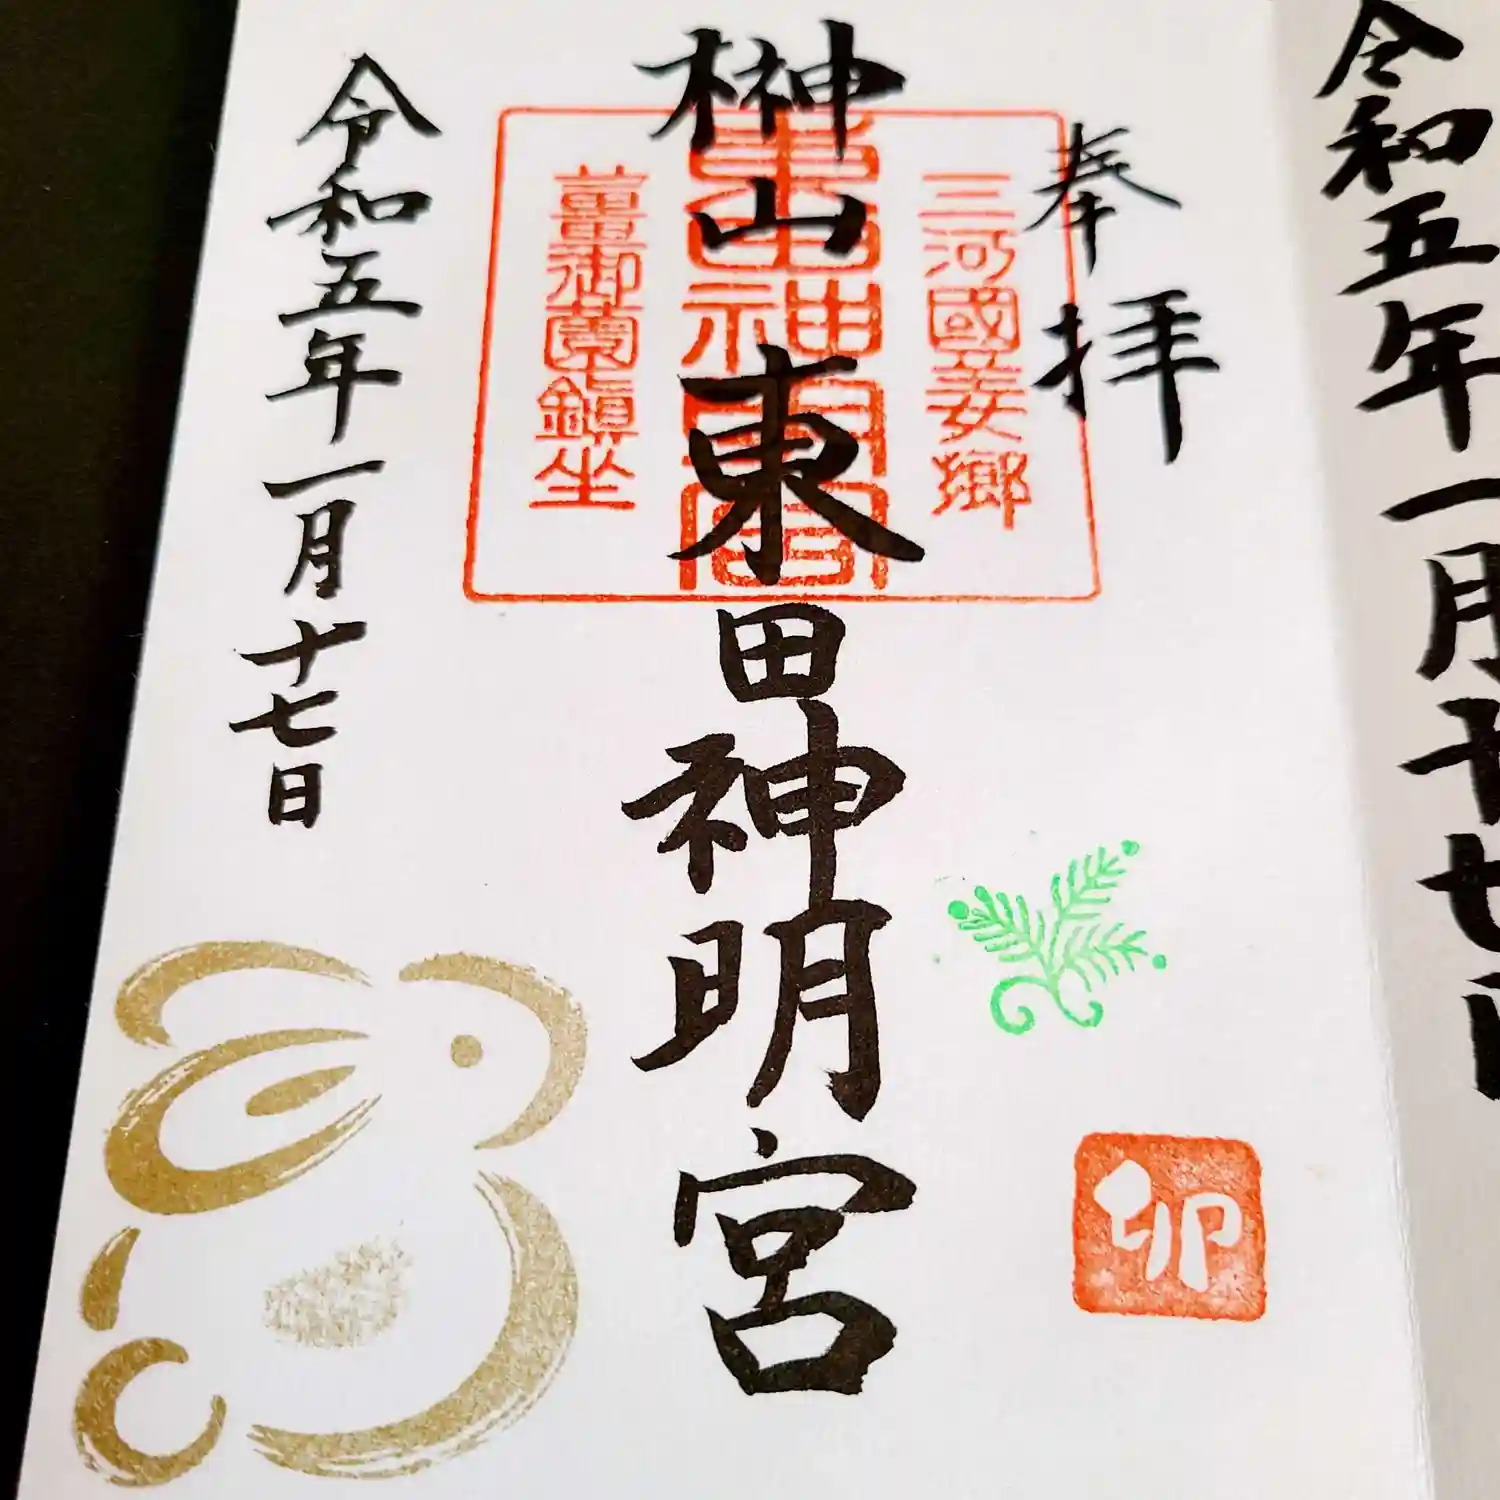 令和五年一月十七日
奉拝
三河國姜郷
東田神明宮
薑御薗鎭坐
榊山 東田神明宮
卯
令和五年一月十七日